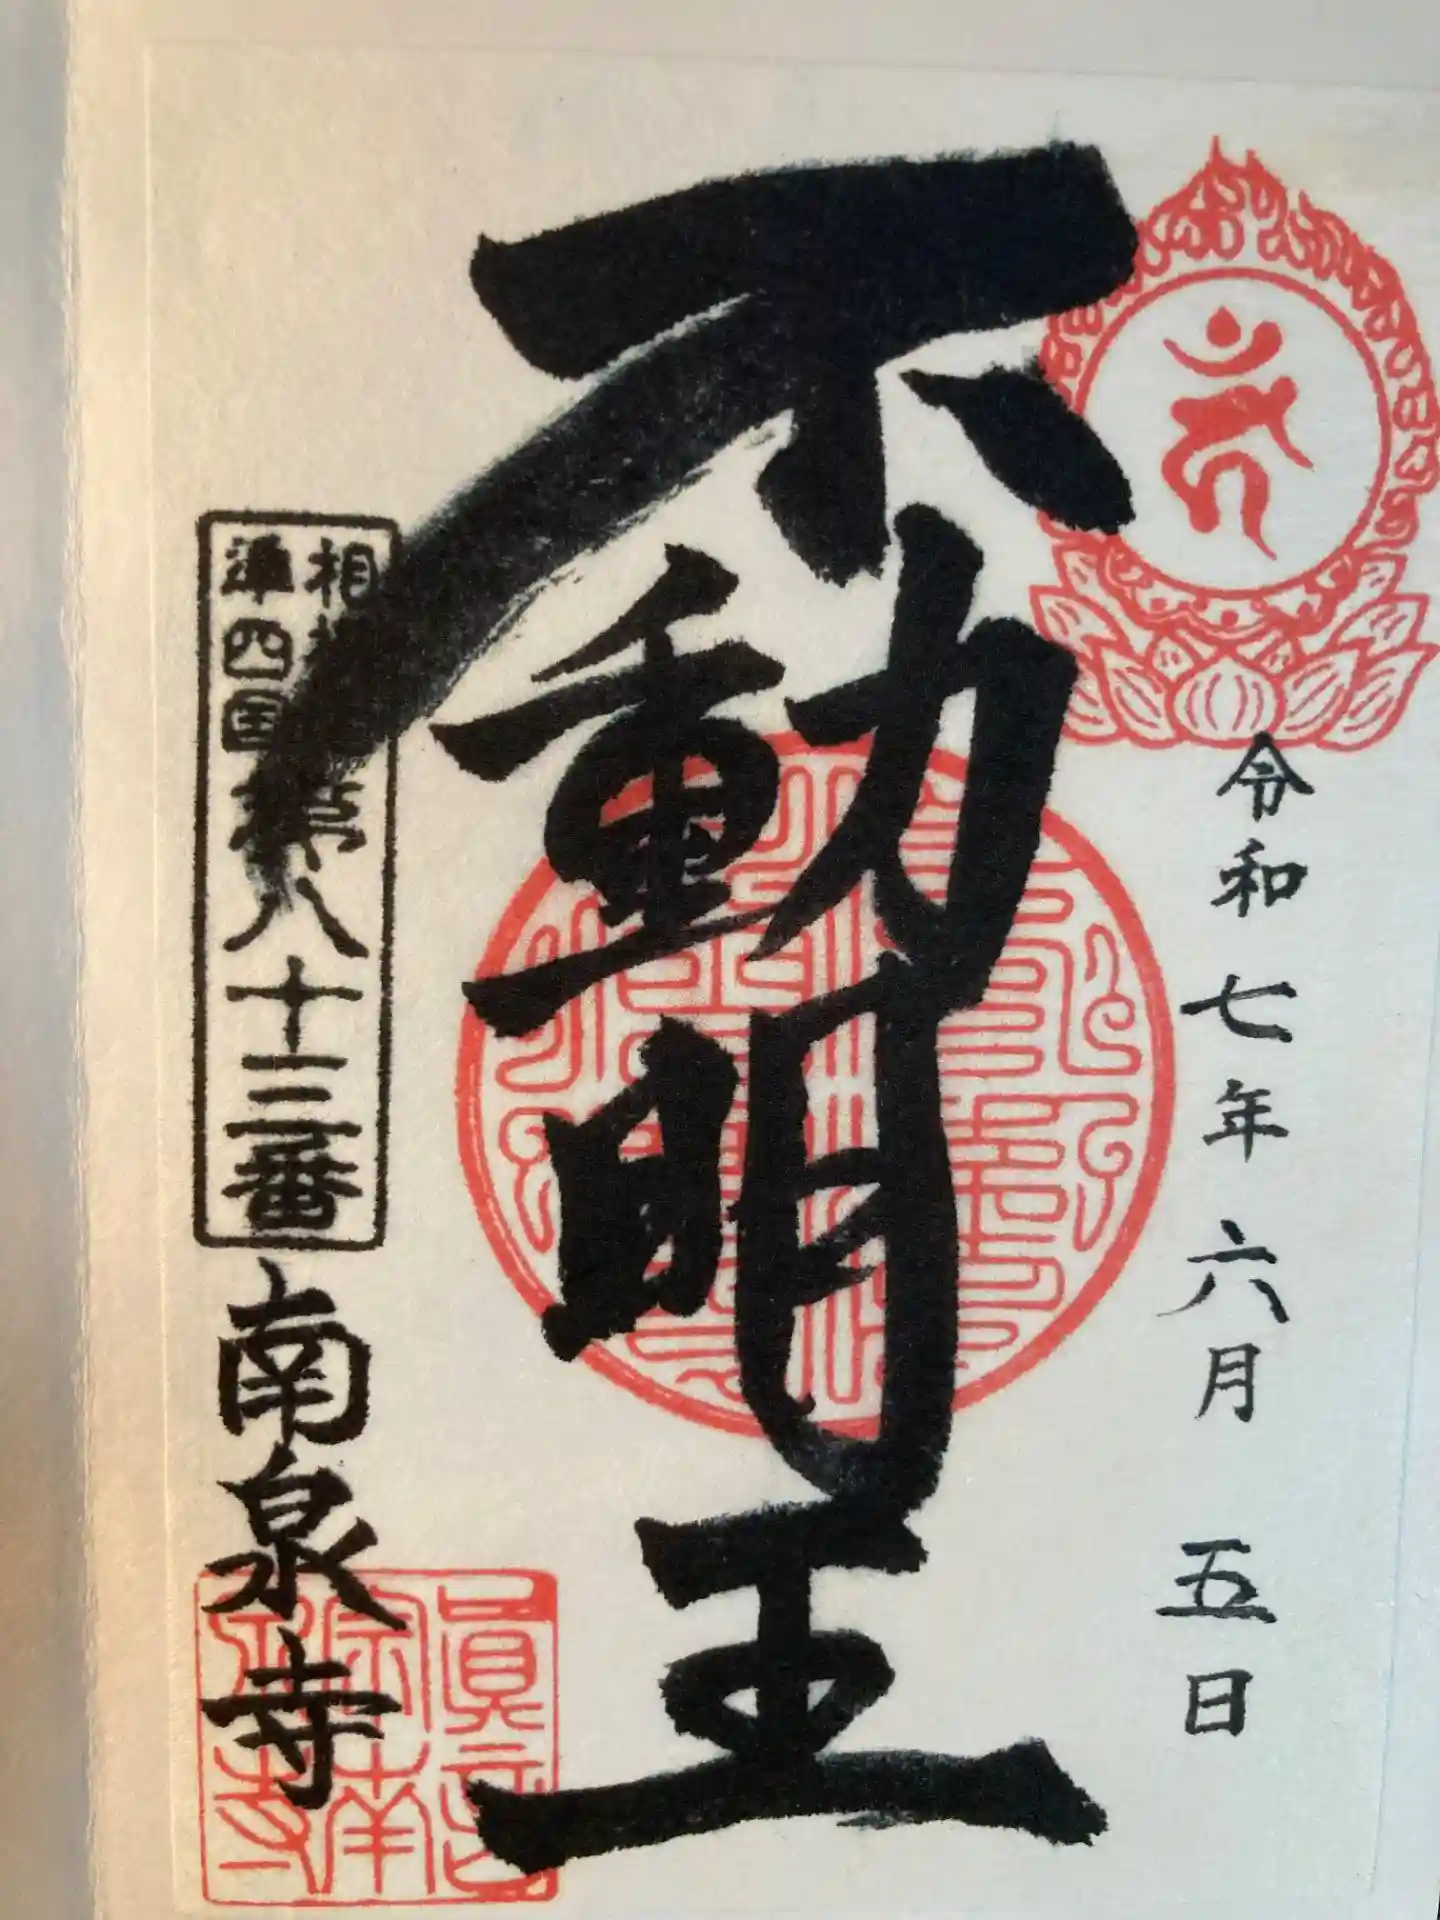 令和七年六月五日
不動明王
相模
準四国第八十三番
南泉寺
眞言宗南泉寺